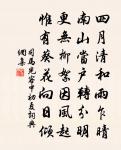 四月清和雨乍晴
南山當戶轉分明
更無柳絮因風起
惟有葵花向日傾
司馬光客中初夏詞典
網集